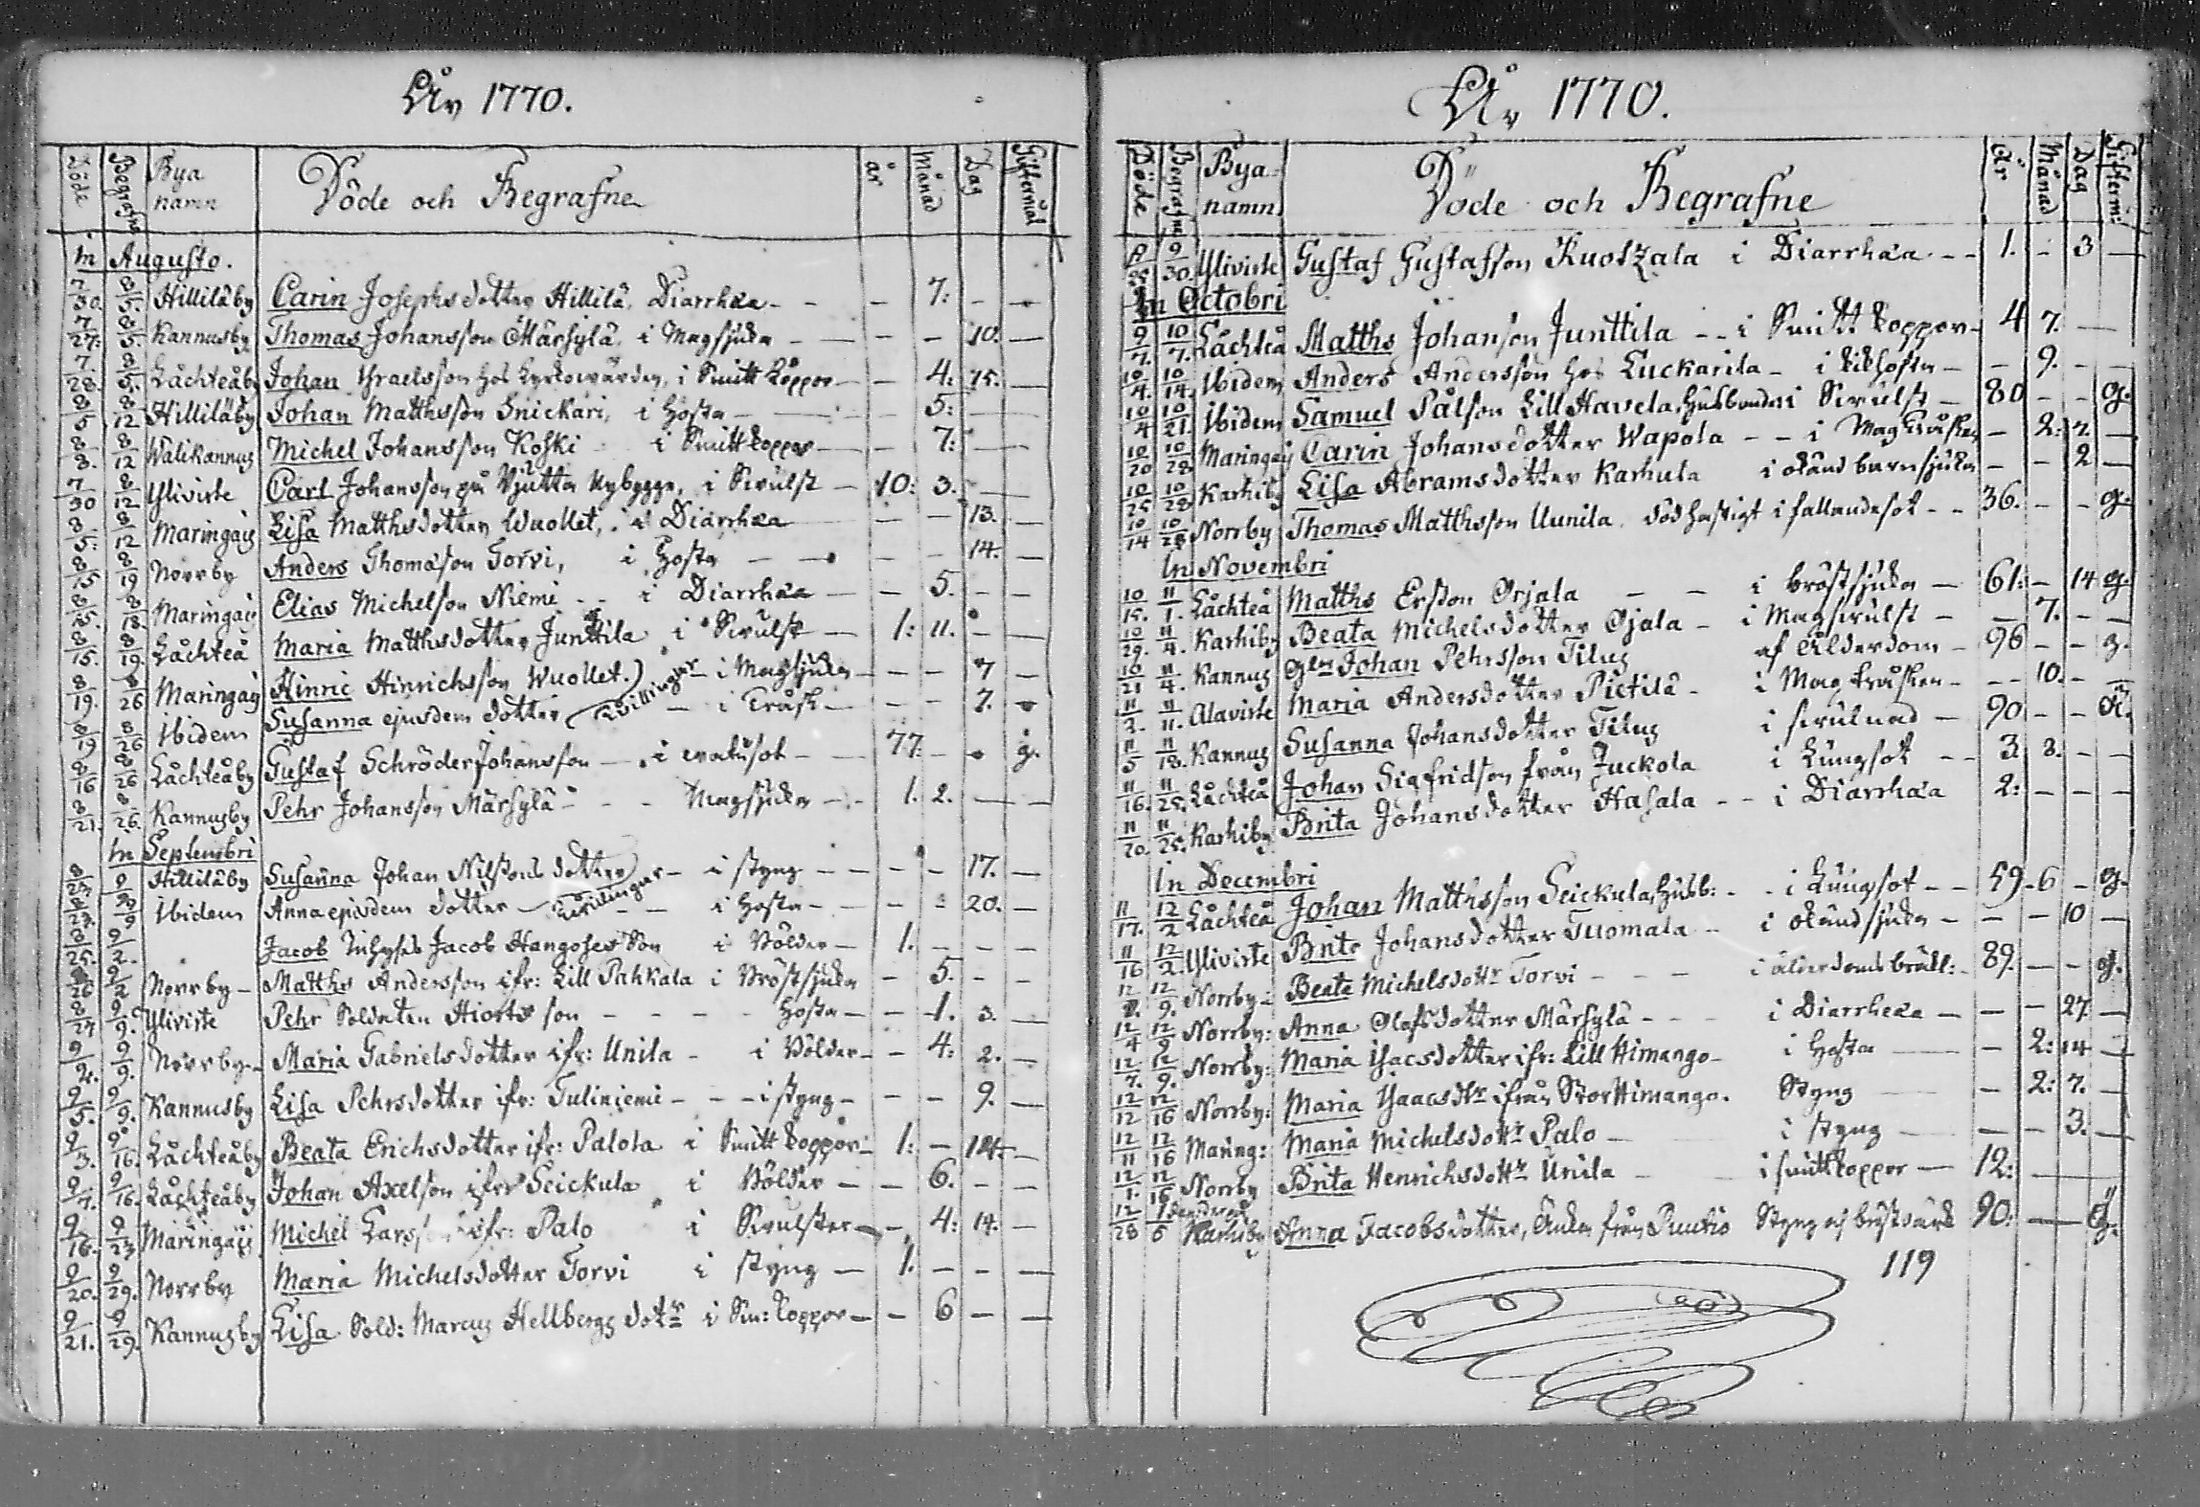 År 1770.
Döde Begrafne Bya namn Döde och Begrafne år Månad Dag Giftermål
In Augusto.
7/30. 8/5. Hilliläby Carin Josephsdotter Hillilä. Diarrhæa - - - 7: - -
7/27: 8/5. Kannusby Thomas Johansson Märsylä. i Magsjuka - - - 10. -
7/28. 8/5. Låchteåby Johan Israelsson hos Kyrkowärden, i Smittkoppor - - 4: 15. -
8/5 8/12 Hilliläby Johan Matthsson Snickari, i Hosta - - 5: - -
8/8. 8/12 Wälikannus Michel Johansson Koski i Smittkoppor - - 7: - -
7/30 8/12 Ylivirte Carl Johansson på Nybygge, i Swulst - 10: 3. - -
8/5: 8/12 Maringais Lisa Matthsdotter Wuollet, i Diarrhæa - - 13. -
8/15 8/19 Norrby Anders Thomason Torvi, i Hosta - - - 14. -
8/15. 8/18. Maringais Elias Michelson Niemi - - i Diarrhæa - - 5. - -
8/15. 8/19. Låchteå Maria Matthsdotter Junttila i Swulst - 1: 11. - -
8/19. 8/26 Maringais Hinric Hinrichsson Wuollet.) Twillingar - i Magsjuka - - - 7 -
8/19 8/26 Ibidem Susanna ejusdem dotter - i Tråsk - - - 7. -
8/16 8/26 Låchteåby Gustaf Schröder Johansson - i watusot - 77. - - g.
8/21. 8/26. Kannusby Pehr Johansson Märsylä - - - Magsjuka - - 1. 2. - -
In Septembri
8/27 9/2 Hilliläby Susanna Johan Nilssons dotter - i styng - - - - 17. -
9/9 Ibidem Anna ejusdem dotter - Twillingar - - i Hosta - - - 20. -
8/25. 9/2. Jacob Inhyses Jacob Hangoses Son i Bölder - 1. - - -
8/26 9/2 Norrby - Matths Andersson ifr: Lill Pahkala i Bröstsjuka - 5. - -
8/27 9/9. Ylivirte Pehr Soldaten Hiorts son - - - - Hosta - - 1. 3. -
9/4. 9/9. Norrby - Maria Gabrielsdotter ifr: Unila - i Bölder - - 4: 2. -
9/5. 9/9. Kannusby Lisa Pehrsdotter ifr: Tuliniemi - - - i styng - - - 9. -
9/3. 9/16. Låchteåby Beata Erichsdotter ifr: Palola i Smittkoppor - 1: - 14. -
9/7. 9/16. Låchteåby Johan Axelson ifrå Seickula i Bölder - - 6. - -
9/16. 9/23 Maringais Michel Larsson ifr: Palo i Swulster - - 4: 14. -
9/20. 9/29. Norrby Maria Michelsdotter Torvi i styng - 1. - - -
9/21. 9/29. Kannusby Lisa Sold: Marcus Hellbergs dotr i Sm: koppor - - 6 - -
År 1770.
Döde Begrafne Bya namn Döde och Begrafne År Månad Dag Gifterm:
9/30. Ylivirte Gustaf Gustafsson Kuoszala i Diarrhæa - - 1. - 3 -
In Octobri
9/7. 10/7. Låchteå Matths Johanson Junttila - - i Smittkoppor - 4 7. -
10/4. 10/14. Ibidem Anders Andersson hos Luckarila - i kikhosta - - 9. - -
10/4 10/21. Ibidem Samuel Pålson Lill Havela, Husbonde i Swulst - 80 - - g.
10/20 10/28 Maringais Carin Johansdotter Wapola - - i Mag Tråsken - 2: 2 -
10/25 10/28 Karhiby Lisa Abramsdotter Karhula i okänd barnsjuka - - 2 -
10/14 10/28 Norrby Thomas Matthsson Uunila. död hastigt i fallandesot - - 36. - - g.
In Novembri
10/15. 11/1. Låchteå Matths Ersson Orjala - - i bröstsjuka - 61: - 14 g.
10/29. 11/4. Karhiby Beata Michelsdotter Ojala - i Magswulst - - 7. - -
10/21 11/4. Kannus Johan Pehrsson Tilus af Ålderdom - 96 - - g.
11/2. 11/11. Alavirte Maria Andersdotter Pietilä - i Mag tråsken - - - 10. - -
11/5 11/18. Kannus Susanna Johansdotter Tilus i swulnad - 90 - -
11/16. 11/25. Låchteå Johan Sigfridson från Juckola i Lungsot - - 3. 3. - -
11/20. 11/25. Karhiby Brita Johansdotter Hasala - - i Diarrhæa 2: - - -
In Decembri
11/17. 12/2 Låchteå Johan Matthsson Seickula, Husb: - - i Lungsot - - 59 - 6 - g.
11/16 12/2. Ylivirte Brita Johansdotter Tuomala - i okänd sjuka - - - 10 -
12/2. 12/9. Norrby - Beata Michelsdottr Torvi - - - i ålderdoms bräkl: - 89. - - g.
12/4 12/9 Norrby: Anna Olofsdotter Märsylä - - - i Diarrhæa - - - 27. -
12/7. 12/9. Norrby: Maria Isacsdotter ifr: Lill Himango - i Hosta - - 2: 14 -
12/12 12/16 Norrby: Maria Isaacsdtr ifrån Stor Himango. Styng - 2: 7. -
12/11 12/16 Maring: Maria Michelsdottr Palo - i styng - - - 3. -
12/1. 12/16 Norrby Brita Henrichsdottr Unila - i smittkoppor - 12: - -
12/28 1/6 Karhiby Anna Jacobsdotter, Enka från Puukio Styng och bröstwärk 90: -
119